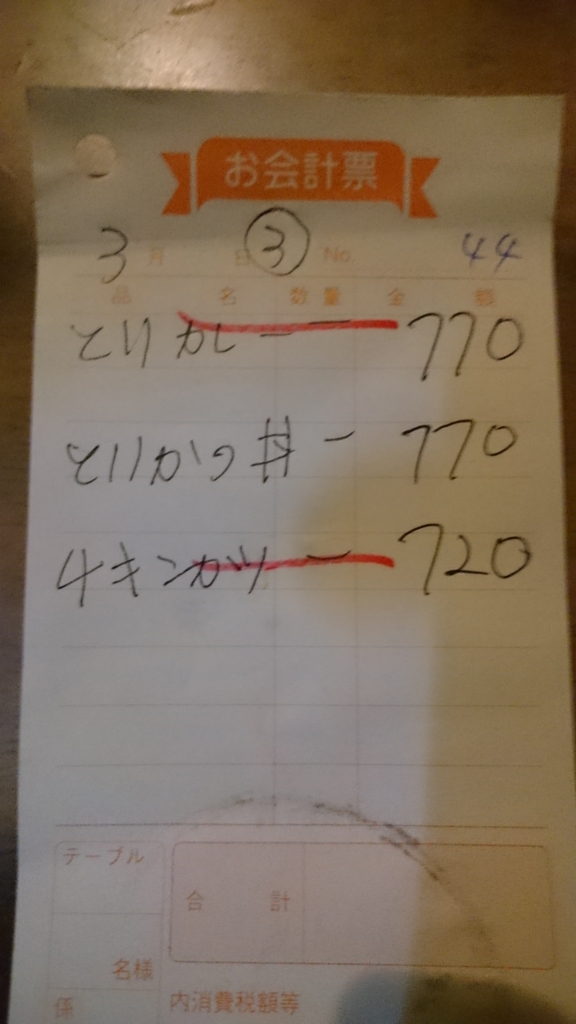 お会計票
3月 日 ③ No. 44
品 名 数 量 金 額
とりカレ 一 770
とりかつ丼 一 770
チキンカツ 一 720
テーブル
合 計
名様
係
内消費税額等